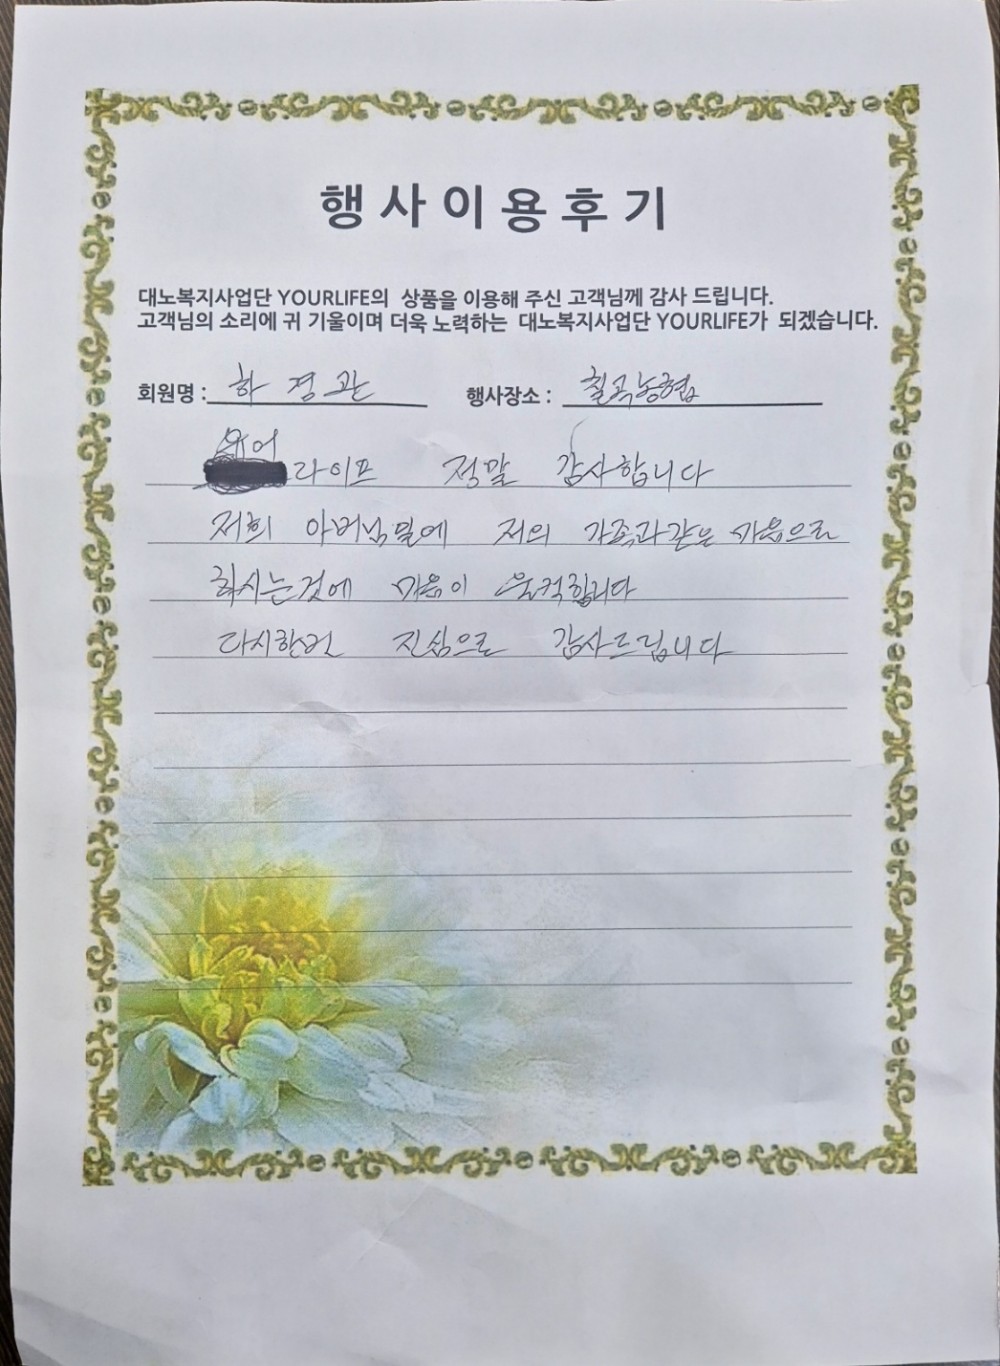 행사이용후기
대노복지사업단 YOURLIFE의 상품을 이용해 주신 고객님께 감사 드립니다.
고객님의 소리에 귀 기울이며 더욱 노력하는 대노복지사업단 YOURLIFE가 되겠습니다.
회원명 : 하 경 관 행사장소 : 칠곡농협
유어
라이프 정말 감사합니다
저희 아버님일에 저의 가족과같은 마음으로
하시는것에 마음이 울컥합니다
다시한번 진심으로 감사드립니다